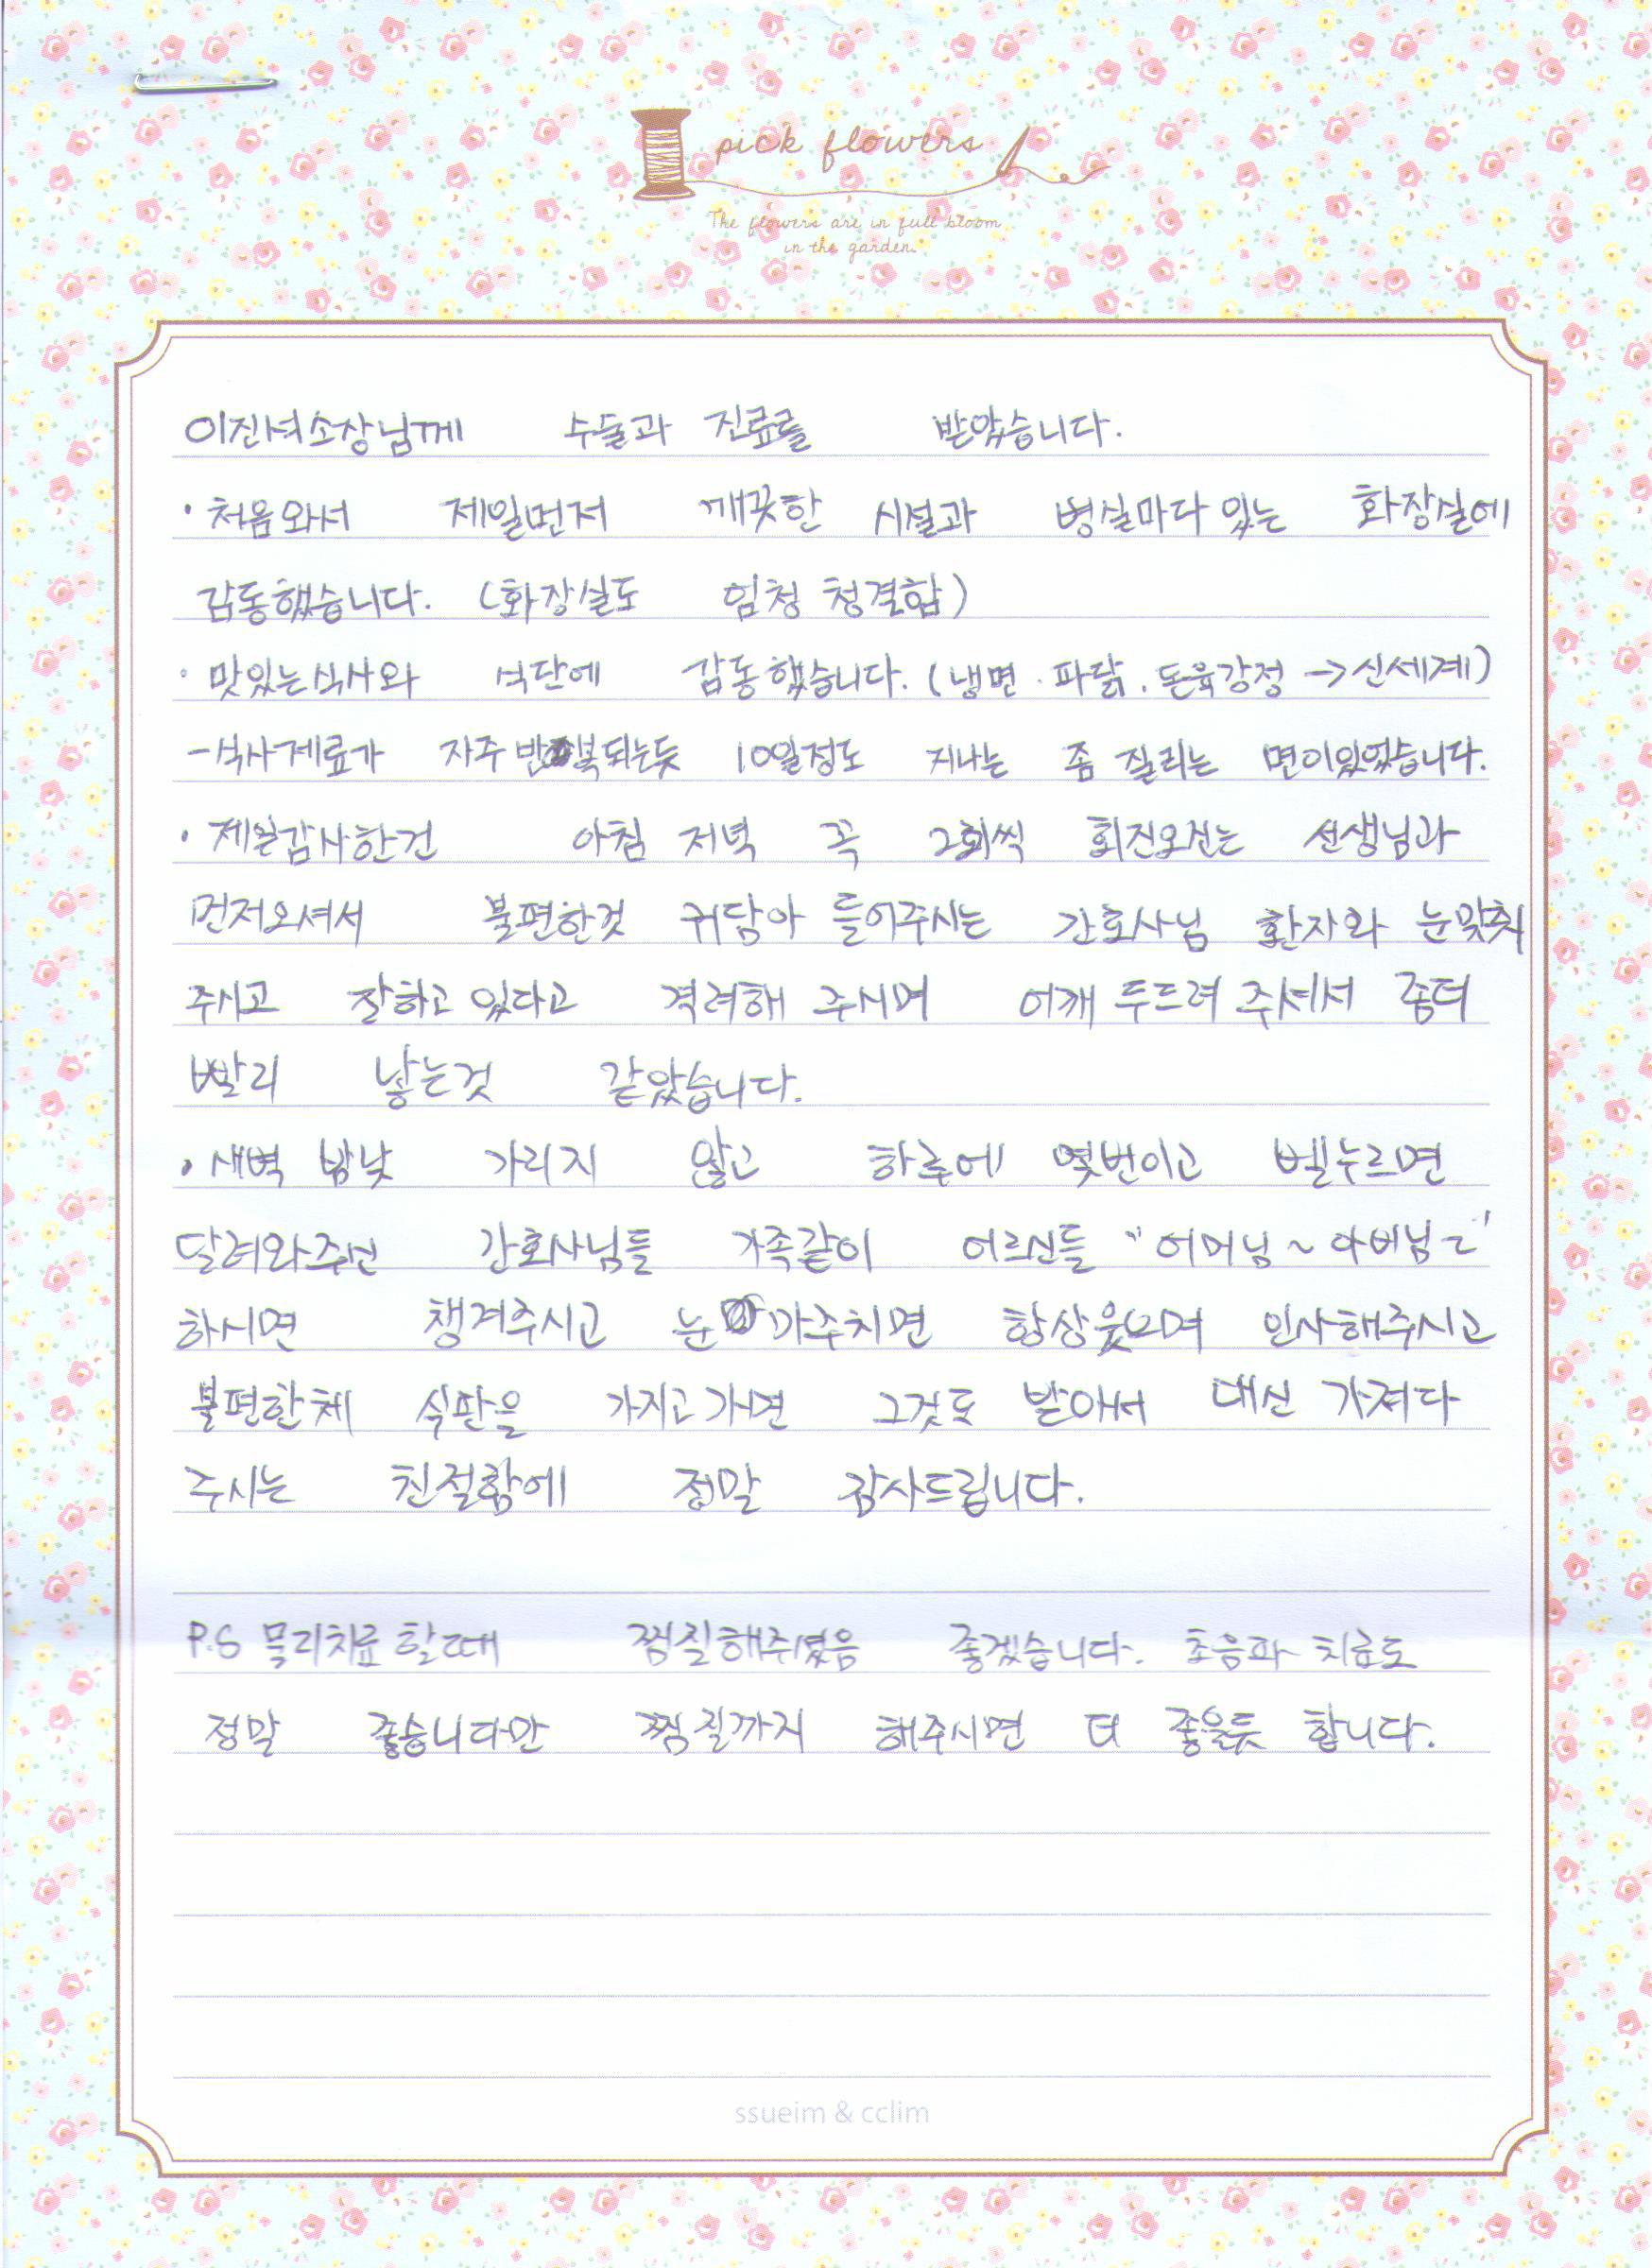 pick flowers
The flowers are in full bloom
in the garden.
이진녀소장님께 수술과 진료를 받았습니다.
· 처음와서 제일먼저 깨끗한 시설과 병실마다 있는 화장실에
감동했습니다. (화장실도 엄청 청결함)
· 맛있는식사와 식단에 감동했습니다. (냉면. 파닭. 돈육강정 → 신세계)
- 식사재료가 자주 반복되는듯 10일정도 지나는 좀 질리는 면이있었습니다.
· 제일감사한건 아침 저녁 꼭 2회씩 회진오시는 선생님과
먼저오셔서 불편한것 귀담아 들어주시는 간호사님 환자와 눈맞춰
주시고 잘하고 있다고 격려해 주시며 어깨 두드려 주셔서 좀더
빨리 낳는것 같았습니다.
· 새벽 밤낮 가리지 않고 하루에 몇번이고 벨누르면
달려와주신 간호사님들 가족같이 어르신들 "어머님~ 아버님~"
하시면 챙겨주시고 눈 마주치면 항상웃으며 인사해주시고
불편한체 식판을 가지고가면 그것도 받아서 대신 가져다
주시는 친절함에 정말 감사드립니다.
P.S 물리치료 할때 찜질해주셨음 좋겠습니다. 초음파 치료도
정말 좋습니다만 찜질까지 해주시면 더 좋을듯 합니다.
ssueim & cclim